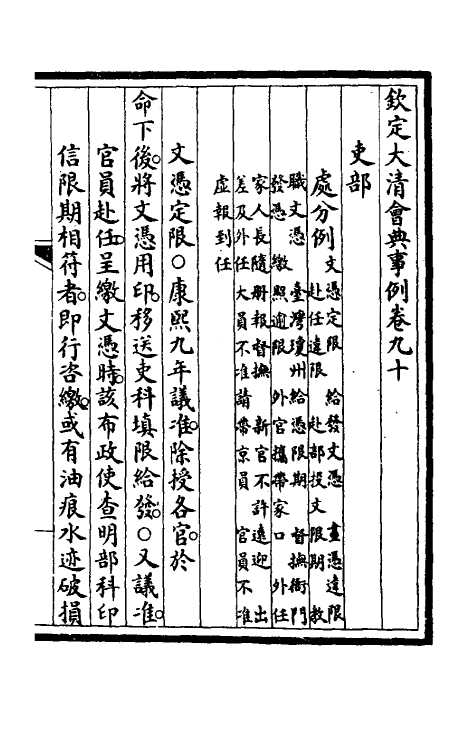 欽定大清會典事例卷九十
吏部
處分例
文憑定限 給發文憑 畫憑違限
赴任違限 赴部投文限期 教
職文憑 臺灣瓊州給憑限期 督撫衙門
發憑 繳照逾限 外官攜帶家口 外任
家人長隨册報督撫 新官不許遠迎 出
差及外任大員不准請帶京員 官員不准
虛報到任
文憑定限○康熙九年議准。除授各官。於
命下後。將文憑用印。移送吏科填限給發。○又議准。
官員赴任。呈繳文憑時。該布政使查明部科印
信限期相符者。即行咨繳。或有油痕水迹破損